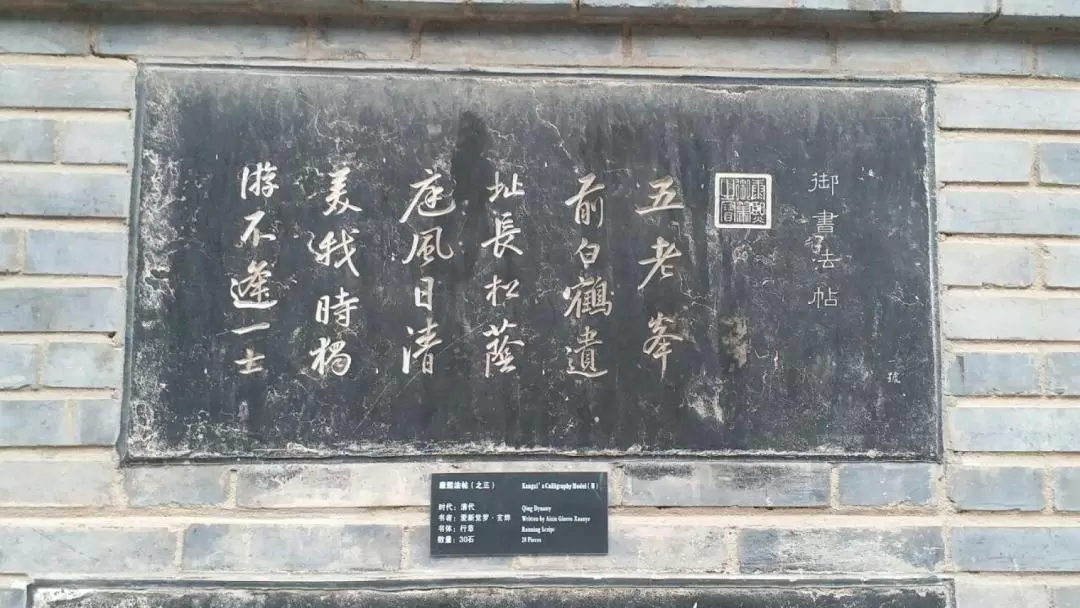 御書法帖
康熙御筆之寶
五老峯
前白鶴遺
址長松蔭
庭風日清
美我時獨
游不逢一士
康熙法帖（之三） Kangxi's Calligraphy Model
时代：清代 Qing Dynasty
书者：爱新觉罗·玄烨 Written by Aixin Xuanye
书体：行草 Running Script
数量：30石 28 Pieces